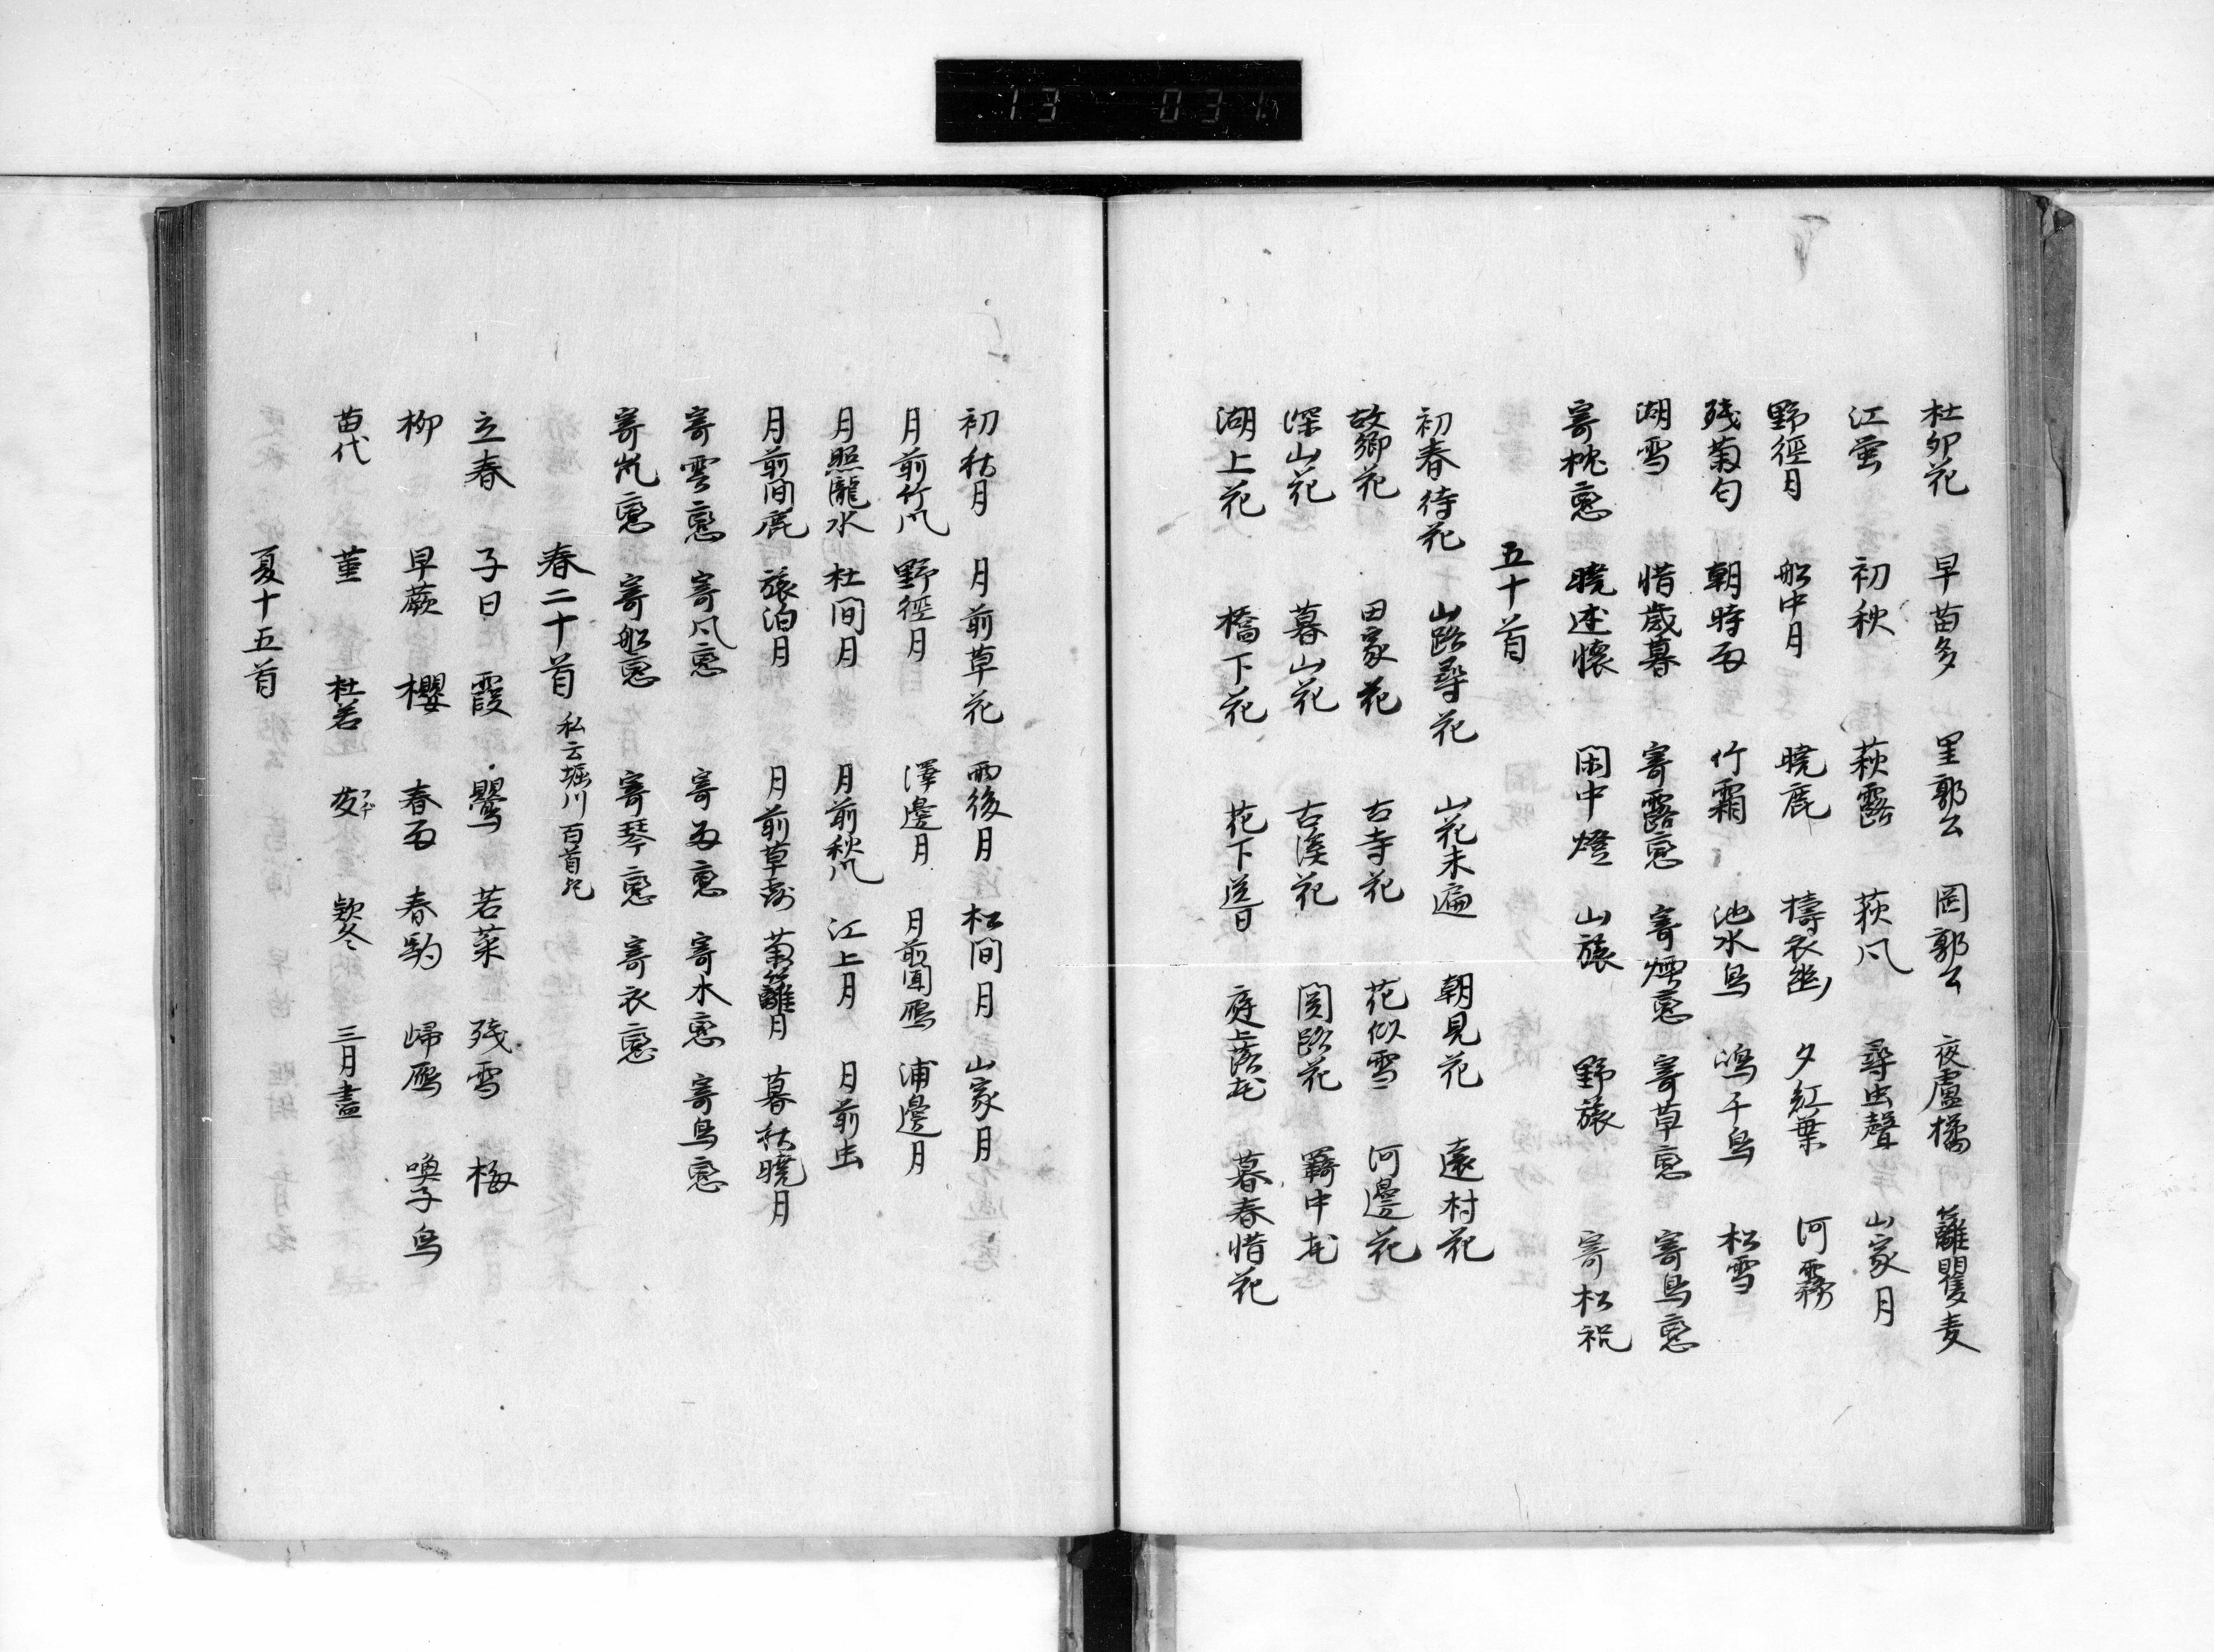 13 031
杜卯花 早苗多 里郭公 岡郭公 夜盧橘 籬瞿麦
江蛍 初秋 萩露 荻風 尋虫聲 山家月
野徑月 船中月 暁鹿 擣衣幽 夕紅葉 河霧
残菊匂 朝時雨 竹霜 池水鳥 鴻千鳥 松雪
湖雪 惜歳暮 寄露恋 寄煙恋 寄草恋 寄鳥恋
寄枕恋 暁述懐 閑中燈 山旅 野旅 寄松祝
五十首
初春待花 山路尋花 山花未遍 朝見花 遠村花
故郷花 田家花 古寺花 花似雪 河邊花
深山花 暮山花 古溪花 関路花 羇中花
湖上花 橋下花 花下送日 庭上落花 暮春惜花
初秋月 月前草花 雨後月 松間月 山家月
月前竹風 野徑月 澤邊月 月前聞鴈 浦邊月
月照瀧水 杜間月 月前秋風 江上月 月前虫
月前聞鹿 旅泊月 月前草露 菊籬月 暮秋暁月
寄雲恋 寄風恋 寄雨恋 寄水恋 寄鳥恋
寄嵐恋 寄船恋 寄琴恋 寄衣恋
春二十首 私云堀川百首也
立春 子日 霞 鸎 若菜 残雪 梅
柳 早蕨 櫻 春雨 春駒 帰鴈 喚子鳥
苗代 菫 杜若 フヂ 款冬 三月盡
夏十五首